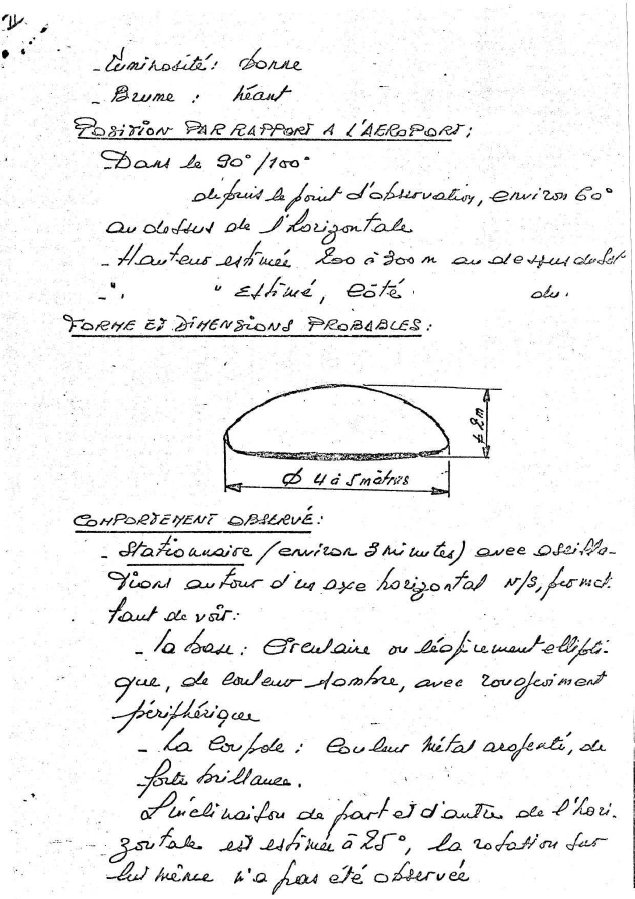 II
- Luminosité: bonne
- Brume : néant
POSITION PAR RAPPORT A L'AEROPORT:
- Dans le 90°/100°
depuis le point d'observation, environ 60°
au dessus de l'horizontale
- Hauteur estimée 200 à 300 m au dessus du sol
- ". " ESTIMÉ, CÔTÉ . du.
FORME ET DIMENSIONS PROBABLES:
φ 2m
φ 4 à 5 mètres
COMPORTEMENT OBSERVÉ:
- Stationnaire (environ 3 minutes) avec oscilla-
tions autour d'un axe horizontal N/S, permet
tant de voir:
- la base: Circulaire ou légèrement ellipti-
que, de couleur sombre, avec rougeoiment
périphérique
- La Coupole : Couleur métal argenté, de
forte brillance.
L'inclinaison de part et d'autre de l'hori-
zontale est estimée à 25°, la rotation sur
lui même n'a pas été observée